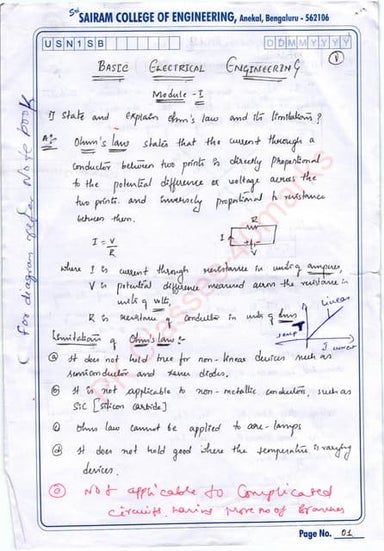 Sri SAIRAM COLLEGE OF ENGINEERING, Anekal, Bengaluru - 562106
USN 1 SB
D D M M Y Y Y Y
1
BASIC ELECTRICAL ENGINEERING
Module - I
1] State and explain ohm's law and its limitations?
A:- Ohm's law states that the current through a
conductor between two points is directly proportional
to the potential difference or voltage across the
two points. and inversely proportional to resistance
between them.
I = V/R
R
I
V
where I is current through resistance in units of amperes,
V is potential difference measured across the resistance in
units of volts,
R is resistance of conductor in units of ohms
Linear
I current
Limitations of Ohm's law :-
a It does not hold true for non-linear devices such as
semiconductor and zener diodes.
b It is not applicable to non-metallic conductors, such as
SiC [silicon carbide]
c Ohm law cannot be applied to arc-lamps
d It does not hold good where the temperature is varying
devices.
e Not applicable to Complicated
circuits having more no of Branches
For diagram refer Note book
Page No. 01